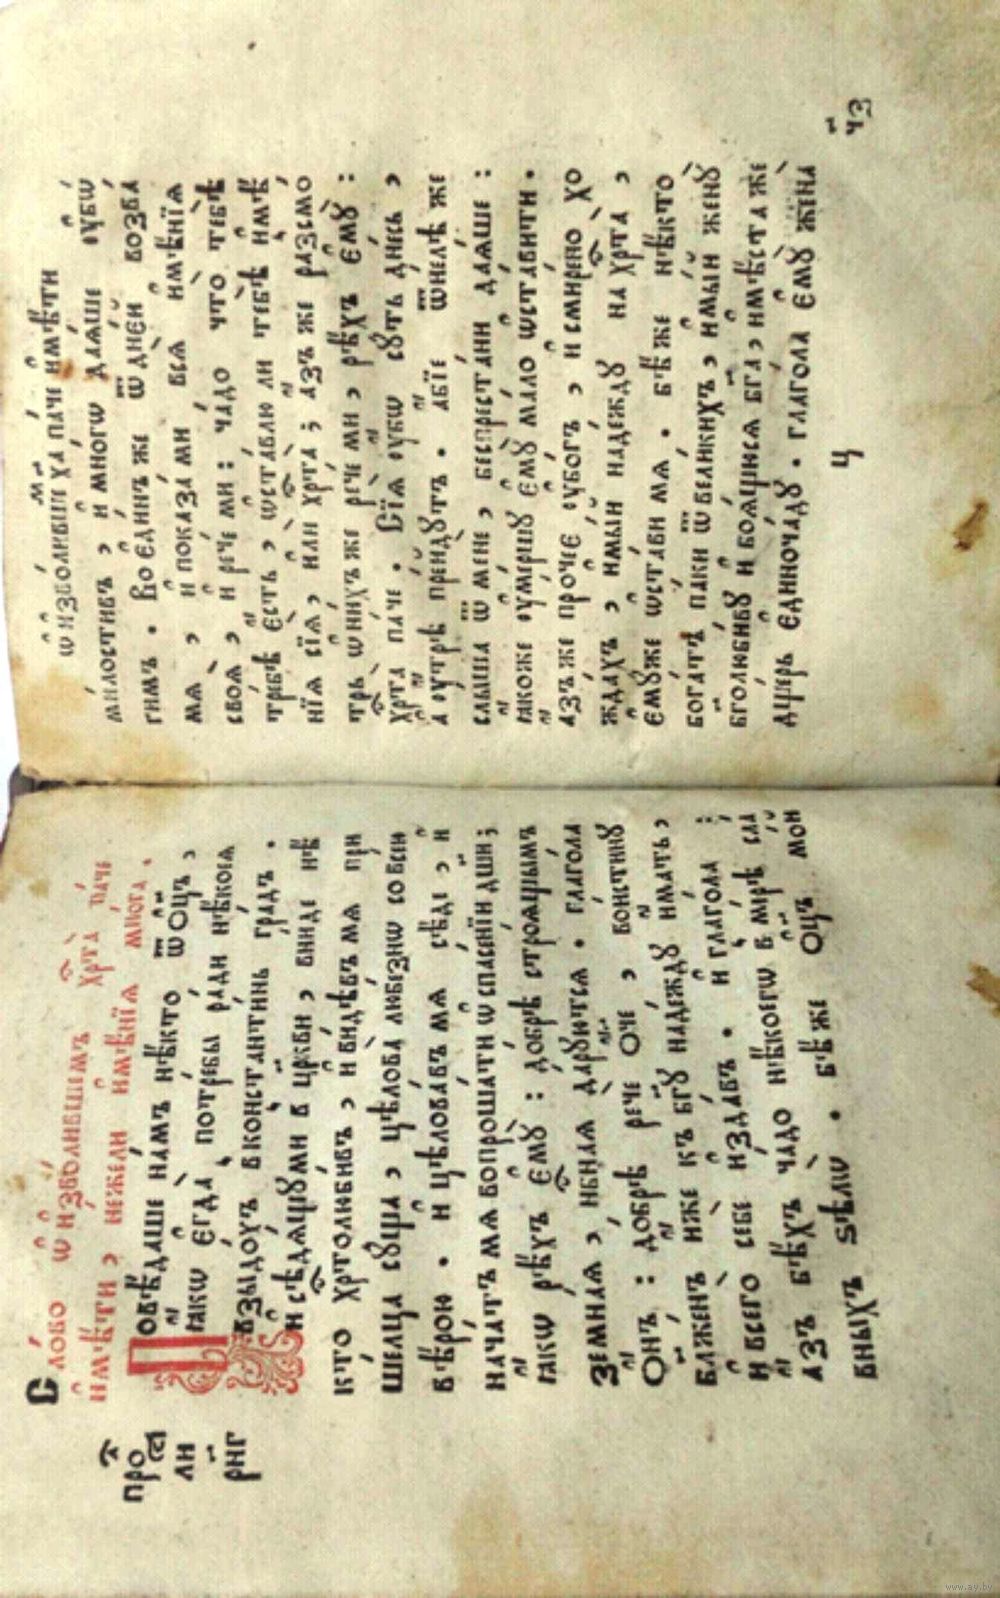 Сло́во ѡ҆ и҆зво́лившимъ хрⷭ҇та̀ па́че
и҆мѣ́ти, не́жели и҆мѣ́нїѧ мно́га.
Повѣ́даше на́мъ нѣ́кто ѿ ѻ҆ц҃ъ,
ꙗ҆́кѡ є҆гда̀ потре́бы ра́ди нѣ́коеѧ
взыдо́хъ в̾константи́нь гра́дъ.
и҆ сѣдѧ́щꙋ ми в̾ цр҃кви, вни́де нѣ́
кто хрⷭ҇толюби́въ, и҆ ви́дѣвъ мѧ при
ше́лца сꙋ́ща, цѣлова̀ любе́знѡ со все́ю
вѣ́рою. и҆ цѣлова́въ мѧ сѣ́де, и҆
нача́тъ мѧ вопроша́ти ѡ҆ спасе́нїи дш҃и;
ꙗ҆́кѡ рѣ́хъ є҆мꙋ̀: до́брѣ строѧ́щымъ
земна́ѧ, нбⷭ҇наѧ да́рꙋютсѧ. глаго́ла
ѻ҆́нъ: до́брѣ рече́ ѻ҆́ч҃е, вои́стиннꙋ
бл҃же́нъ и҆́же къ бг҃ꙋ наде́ждꙋ и҆́мать,
и҆ всего̀ себѐ и҆зда́въ. и҆ глаго́ла;
а҆́зъ бѣ́хъ ча́до нѣ́коегѡ в̾ мі́рѣ сла́
вныхъ ѕѣлѡ̀. бѣ́ же ѻ҆ц҃ъ мо́й
про
ли
рн҃г
ѡ҆ и҆зво́лившихъ хⷭ҇а̀ па́че и҆мѣ́ти
ми́лостивъ, и҆ мно́гѡ даѧ́ше ᲂу҆бѡ́
гимъ. Во є҆ди́нъ же ѿ дне́й возва̀
мѧ, и҆ показа́ ми всѧ̀ и҆мѣ́нїѧ
своѧ̀, и҆ рече́ ми: ча́до что̀ тебѣ̀
тре́бѣ є҆́сть, ѡ҆ста́влю ли тебѣ̀ и҆мѣ́
нїѧ сїѧ̀, и҆лѝ хрⷭ҇та̀; а҆́зъ же разсмо́
трь ѡ҆ ни́хъже рече́ ми, рѣ́хъ є҆мꙋ̀:
хрⷭ҇та̀ па́че. Сїѧ̀ ᲂу҆́бѡ сꙋ́ть дне́сь,
а҆ ᲂу҆́трѣ пре́йдꙋтъ. а҆́бїе ѿнелѣ́же
слы́ша ѿ менѐ, беспреста́ни даѧ́ше:
ꙗ҆́коже ᲂу҆ме́ршꙋ є҆мꙋ̀ ма́ло ѡ҆ста́вити.
а҆́зъ же про́чее ᲂу҆бо́гъ, и҆ смире́но хо
жда́хъ, и҆мы́й наде́ждꙋ на хрⷭ҇та̀,
є҆мꙋ́же ѡ҆ста́ви мѧ. бѣ́ же нѣ́кто
бога́тъ па́ки ѿ вели́кихъ, и҆мы́й женꙋ̀
бг҃олюби́вꙋ и҆ боѧ́щꙋсѧ бг҃а, и҆мѣ́ста же
дщ҃е́рь є҆диноча́дꙋ. глаго́ла є҆мꙋ̀ жена̀
ц
ч҃з
www.ay.by